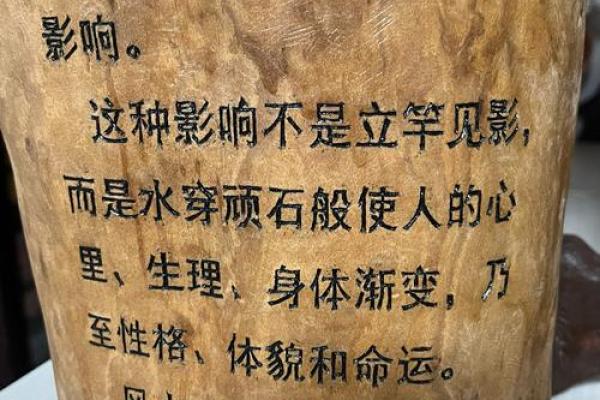 影响。
这种影响不是立竿见影，
而是水穿顽石般使人的心
里、生理、身体渐变，乃
至性格、体貌和命运。